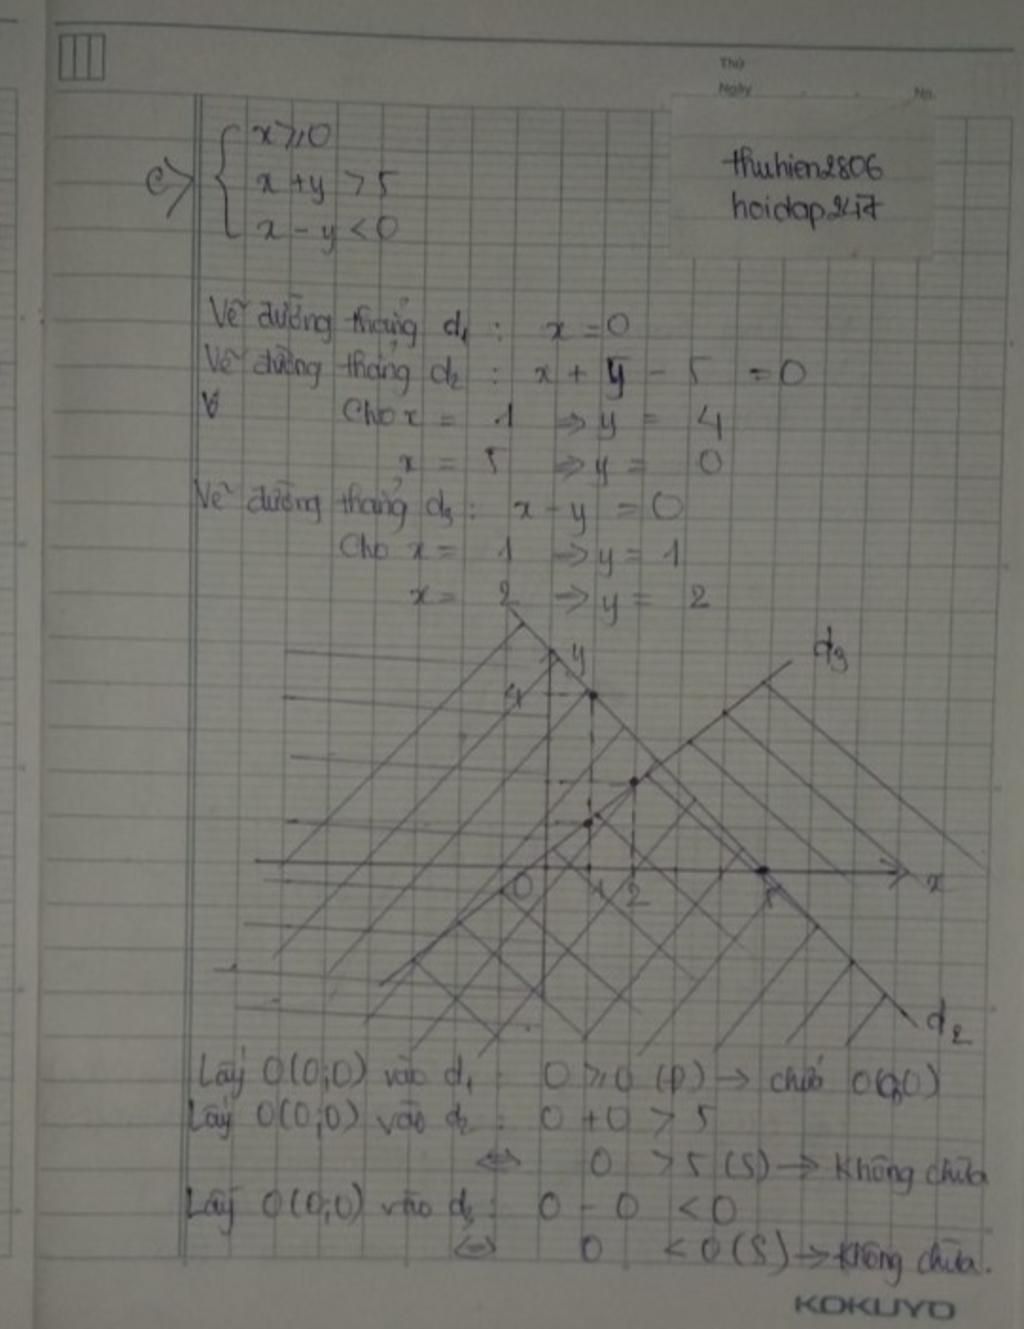 Thứ
Ngày No.
thuhien2806
hoidap247
c) { x ≥ 0
x + y > 5
x - y < 0
Vẽ đường thẳng d₁ : x = 0
Vẽ đường thẳng d₂ : x + y - 5 = 0
Cho x = 1 ⇒ y = 4
x = 5 ⇒ y = 0
Vẽ đường thẳng d₃ : x - y = 0
Cho x = 1 ⇒ y = 1
x = 2 ⇒ y = 2
y
d₃
4
0 1 2 5 x
d₂
Lấy O(0;0) vào d₁ : 0 ≥ 0 (Đ) → chứa O(0;0)
Lấy O(0;0) vào d₂ : 0 + 0 > 5
⇔ 0 > 5 (S) → Không chứa
Lấy O(0;0) vào d₃ : 0 - 0 < 0
⇔ 0 < 0 (S) → Không chứa.
KOKUYO